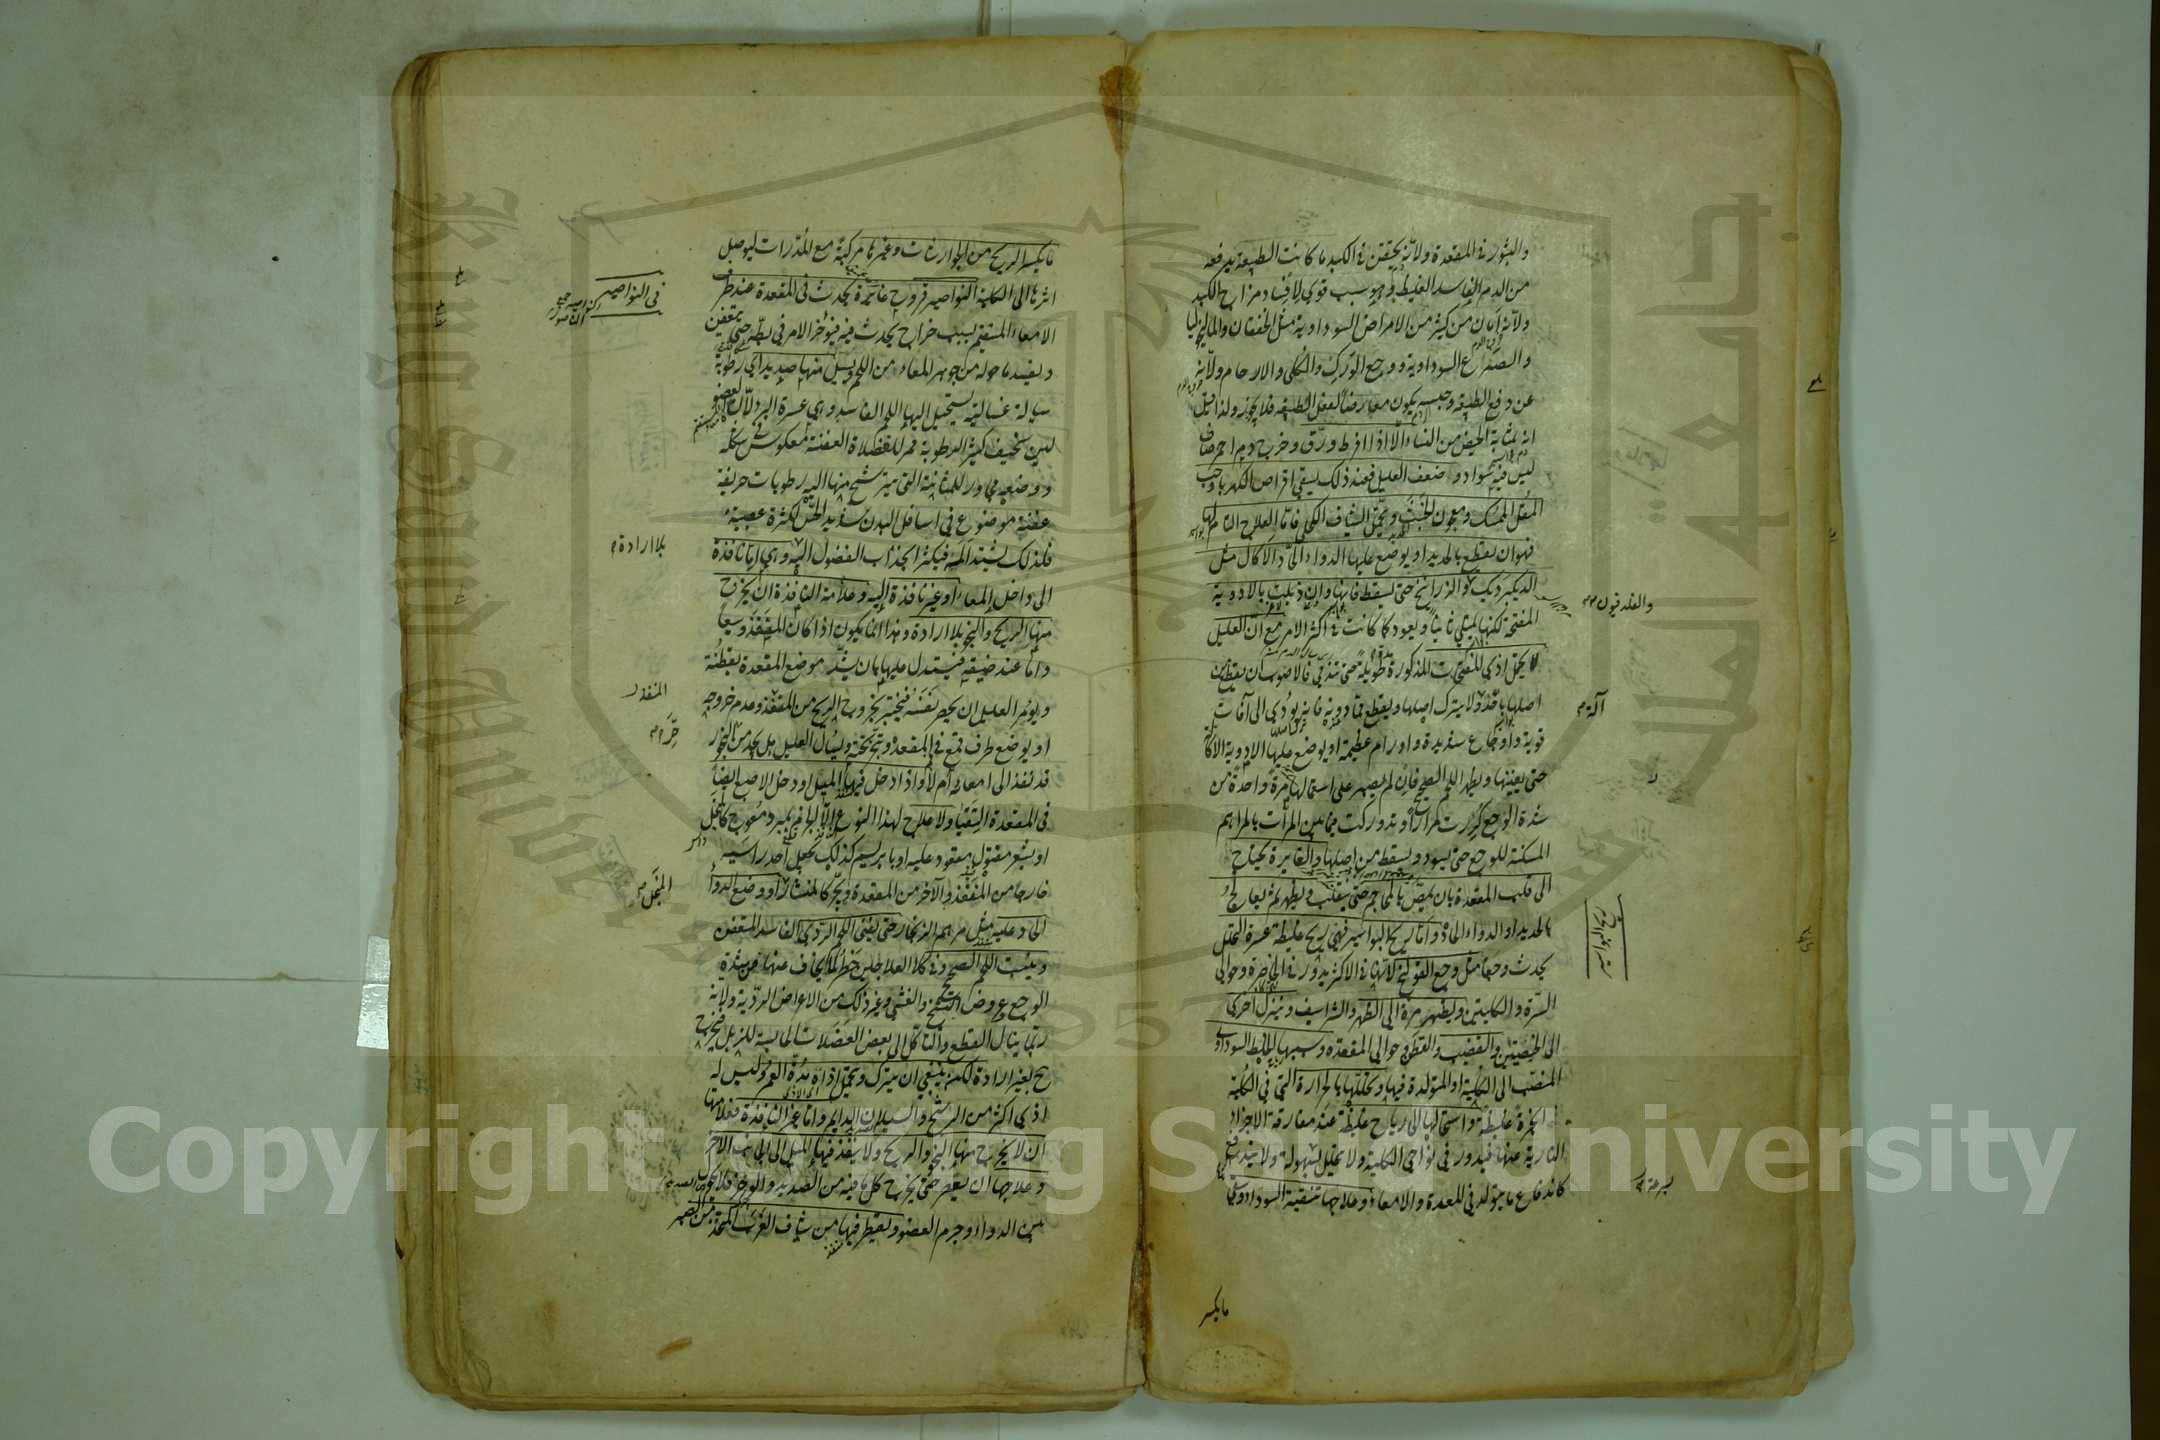 والبثور فى المقعدة ولانه يحتقن فى الكبد ما كانت الطبيعة يدفعه
من الدم الفاسد الغليظ وهو سبب قوى لافساد مزاج الكبد
ولانه امان من كثير من الامراض السوداوية مثل الخفقان والماليخوليا
والصرع السوداوية ووجع الورك والكلى والارحام ولانه
عن دفع الطبيعة وحبسه يكون معارضا لفعل الطبيعة فلا يجوز ولذا قيل
انه بمثابة الحيض من النساء الا اذا افرط ورق وخرج دم احمر صاف
ليس فيه سواد وضعف العليل فعند ذلك يسقى اقراص الكهربا وحب
المقل الممسك ومعجون الخبث ويحمل الشياف الكحلى فاما العلاج التام لها
فهو ان يقطع بالحديد او يوضع عليها الدواء الحاد الاكال مثل
الديكبرديك والزرانيخ حتى يسقط فانها وان ذبلت بالادوية
المفتحة لكنها يمتلى ثانيا ويعود كما كانت فى اكثر الامر مع ان العليل
لا يحتمل اذى المفتحات المذكورة طويلة حتى تندفى فالاصوب ان يقطع من
اصلها باقذ ولا يترك اصلها ويقطع ما دونه فانه يؤدى الى آفات
قوية واوجاع شديدة واورام عظيمة او يوضع عليها الادوية الاكالة
حتى يفنيها ويظهر اللحم الصحيح فان لم يصبر على استعمالها مرة واحدة من
شدة الوجع كررت مرارا وتدوركت فيما بين المرات بالمراهم
المسكنة للوجع حتى يسود ويسقط من اصلها والغايرة يحتاج
الى قلب المقعدة بان يمص بالمحاجم حتى ينقلب ويظهر ثم يعالج
بالحديد او الدواء الحاد واما ريح البواسير فهى ريح غليظة عسرة التحلل
يحدث وجعا مثل وجع القولنج لانها فى الاكثر يدور فى الخاصرة وحوالى
السرة والكليتين ويظهر مرة الى الظهر والشراسيف وينزل اخرى
الى الخصيتين والقضيب والقطن وحوالى المقعدة وسببها الخلط السوداوى
المنصب الى الكلية او المتولدة فيها وتحللها بالحرارة التى فى الكلية
ابخرة غليظة واستحالتها الى رياح غليظة عند مفارقة الاجزاء
النارية عنها فيدور فى نواحى الكلية ولا يتحلل بسهولة ولا يندفع
كاندفاع ما يتولد فى المعدة والامعاء وعلاجها تنقية السوداء وسقى
والفلدفيون
آلة
ريح البواسير
بسرعة
مايكسر
مايكسر الريح من الجوارشات وغيرها مركبة مع المدرات ليوصل
اثرها الى الكلية النواصير قروح غائرة يحدث فى المقعدة عند طرف
الامعاء المستقيم بسبب خراج يحدث فيه فيؤخر الامر فى بطه حتى يتعفن
ويفسد ما حوله من جوهر المعاء من اللحم ويسيل منها صديد اى رطوبة
سيالة غسالية يستحيل اليها اللحم الفاسد وهى عسرة البرء لان العضو
لين سخيف كثير الرطوبة ممر للفضلات العفنة معكوس فى شكله
ووضعه مجاور للمثانة التى يترشح منها اليه رطوبات حريفة
عفنة موضوع فى اسافل البدن شديد الحس لكثرة عصبه
فلذلك يشتد المه فيكثر انجذاب الفضول اليه وهى اما نافذة
الى داخل المعاء او غير نافذة اليه وعلامة النافذة ان يخرج
منها الريح والنجو بلا ارادة وهذا انما يكون اذا كان المنفذ وسيعا
واما عند ضيقه فيستدل عليها بان يشد موضع المقعدة بقطنة
ويؤمر العليل ان يحصر نفسه فيختبر بخروج الريح من المنفذ وعدم خروجه
او يوضع طرف قمع فى المقعدة ويبخر تحته ويسأل العليل هل يجد من البخور
قد نفذ الى امعائه ام لا واذا ادخل فيها الميل او دخل الاصبع ايضا
فى المقعدة التقيا ولا علاج لهذا النوع الا الخرم بمبرد معوج كالمنجل
او بشعر مفتول معقود عليه او بابريسم كذلك تجعل احد راسيه
خارجا من المنفذ والآخر من المقعدة ويجر كالمنشار او وضع الدواء
الحاد عليه مثل مرهم الزنجار حتى يفنى اللحم الردى الفاسد المتعفن
وينبت اللحم الصحيح وفى كلا العلاجين خطر لما يخاف عنهما من شدة
الوجع وعروض التشنج والغشى وغير ذلك من الاعراض الردية ولانه
ربما ينال القطع والتاكل الى بعض العضلات الحابسة للزبل فيخرج
بغير ارادة لكن ينبغى ان يترك ويحمل اذاه مدة العمر وليس له
اذى اكثر من الرشح والسيلان الدايم واما غير النافذة فعلامتها
ان لا يخرج منها النجو والريح ولا ينفذ فيها الميل الى الجانب الآخر
وعلاجها ان يعصر حتى يخرج كل ما فيه من الصديد والوضر فلا يحول
بين الدواء وجرم العضو ويقطر فيها من شياف الغرب المتخذ من الصبر
فى النواصير
بلا ارادة
المنفذ
المنجل
Copyright © King Saud University
King Saud University
1957